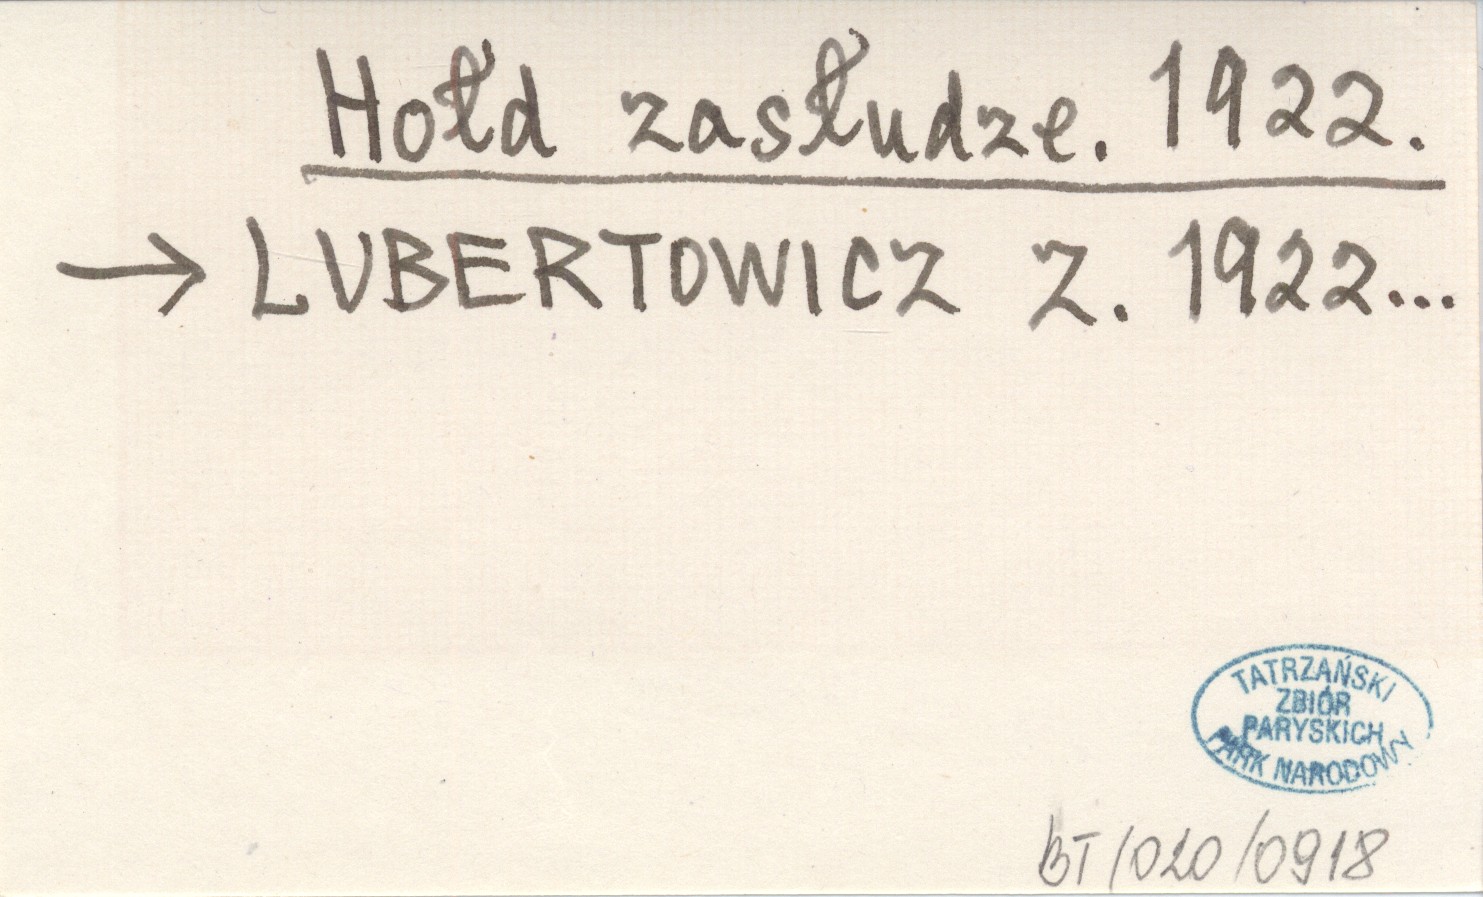 Hołd zasłudze. 1922.
→ LUBERTOWICZ Z. 1922...
TATRZAŃSKI
ZBIÓR
PARYSKICH
PARK NARODOWY
BT/020/0918